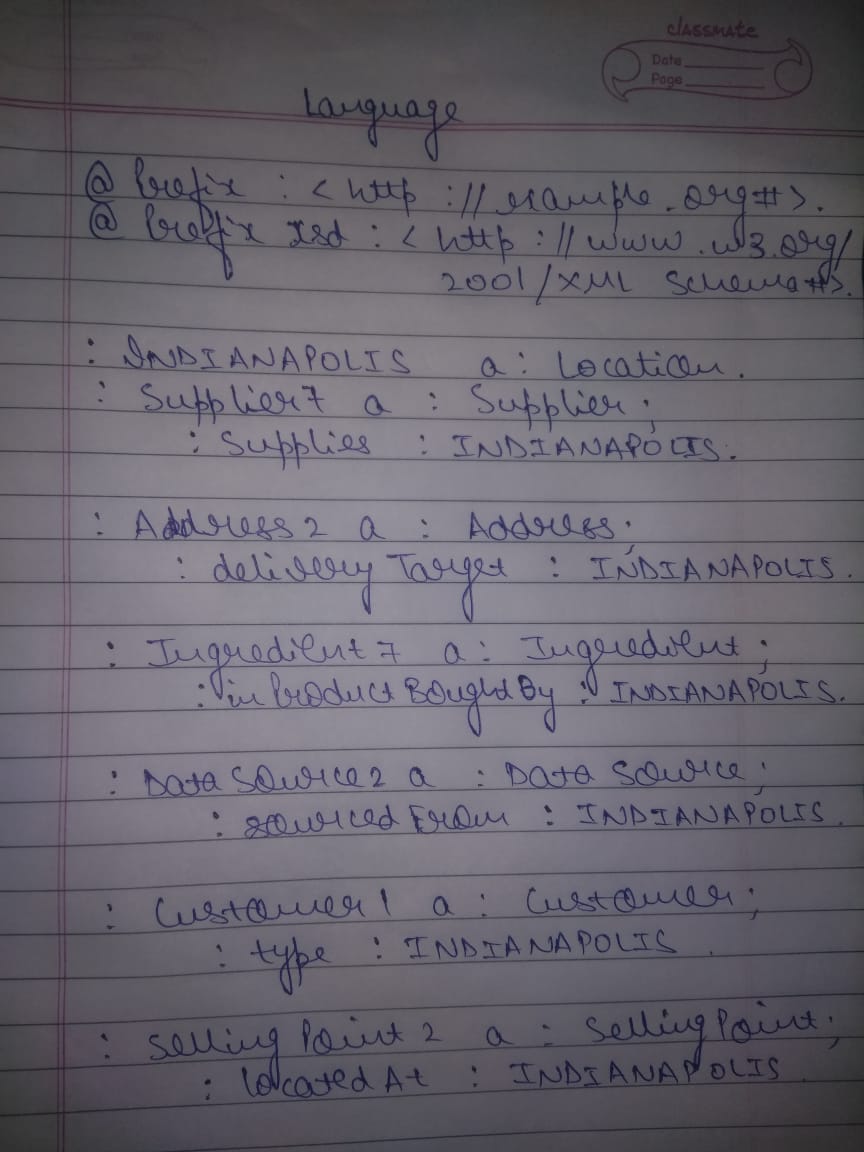 classmate
Date
Page
Language
@ Prefix : < http : // example . org # > .
@ Prefix xsd : < http : // www . w3 . org /
2001 / XML Schema # > .
: INDIANAPOLIS a : Location .
: Supplier7 a : Supplier ;
: Supplies : INDIANAPOLIS .
: Address2 a : Address ;
: delivery Target : INDIANAPOLIS .
: Ingredient7 a : Ingredient ;
: in Product Bought By : INDIANAPOLIS .
: Data Source2 a : Data Source ;
: sourced From : INDIANAPOLIS .
: Customer1 a : Customer ;
: type : INDIANAPOLIS .
: Selling Point 2 a : Selling Point ;
: located At : INDIANAPOLIS